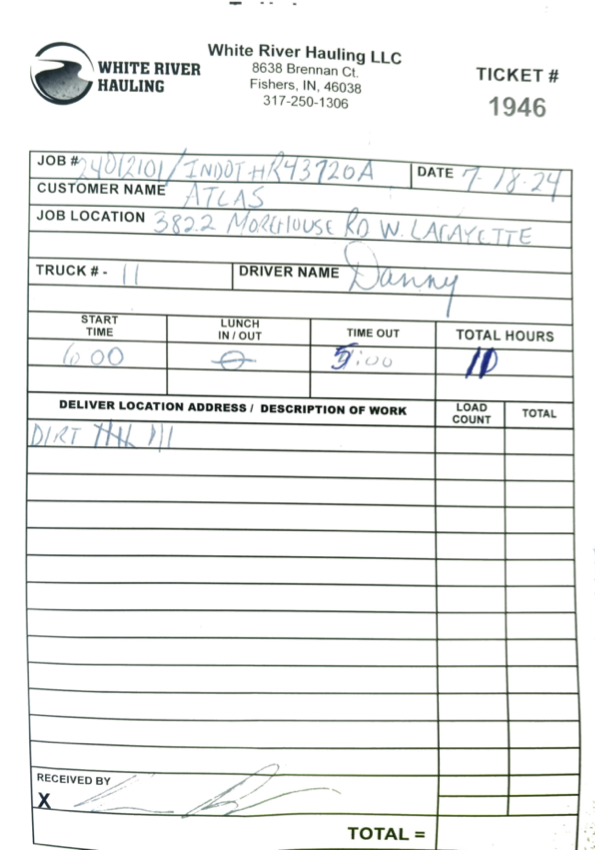 WHITE RIVER
HAULING
White River Hauling LLC
8638 Brennan Ct.
Fishers, IN, 46038
317-250-1306
TICKET #
1946
JOB # 24012101/INDOT-HR43720A DATE 7-18-24
CUSTOMER NAME ATLAS
JOB LOCATION 3822 MOREHOUSE RD W. LAFAYETTE
TRUCK # - 11 DRIVER NAME Danny
START TIME LUNCH IN / OUT TIME OUT TOTAL HOURS
6:00 5:00
DELIVER LOCATION ADDRESS / DESCRIPTION OF WORK LOAD COUNT TOTAL
DIRT
RECEIVED BY
X
TOTAL =